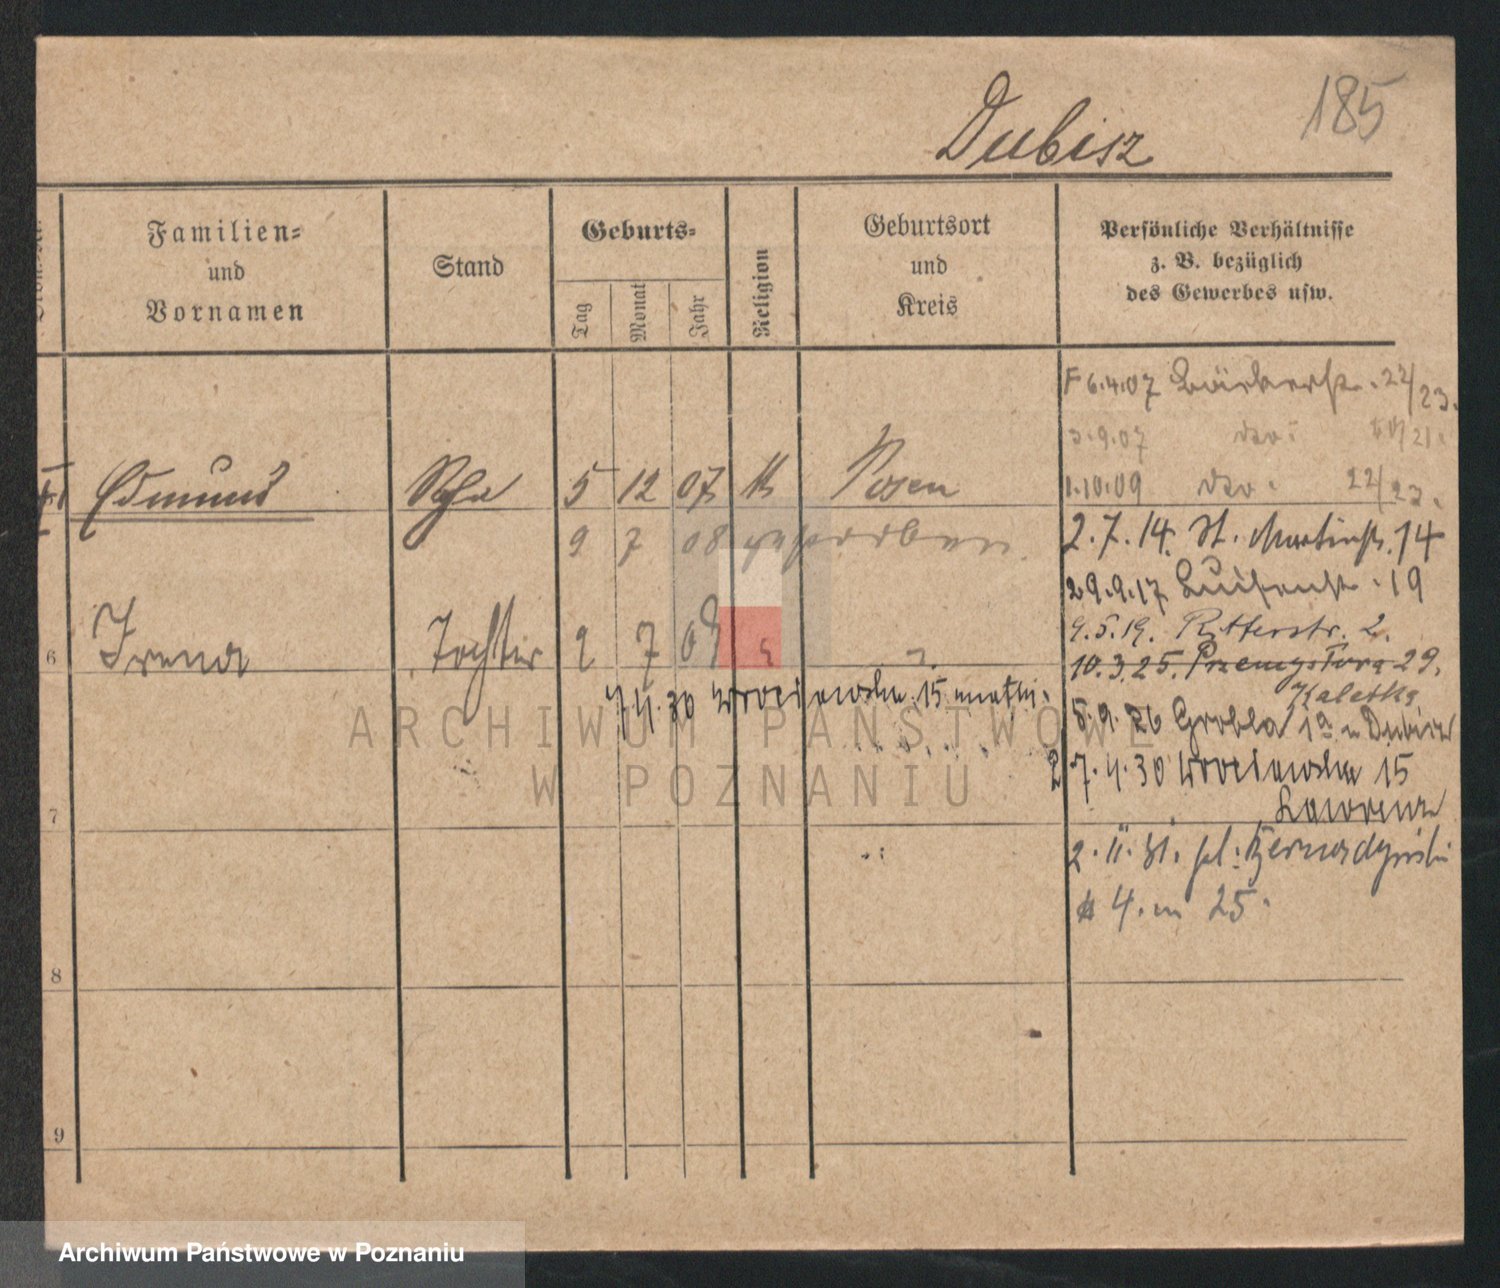 185
Dubisz
Familien=
und
Vornamen
Stand
Geburts=
Tag
Monat
Jahr
Religion
Geburtsort
und
Kreis
Persönliche Verhältnisse
z. B. bezüglich
des Gewerbes usw.
6.4.07 22/23.
3.9.07 dto:
Edmund 5 12 07 k Posen
1.10.09 dto. 22/23.
9 7 08
2.7.14. St. Martinstr. 14
29.9.17 Luisenstr. 19
9.5.19. Ritterstr. 2.
6 Irena Tochter 2 7 09
10.3.25. Przemysłowa 29.
Kaletka
7.4.30 Wrocławska 15
5.9.26 Grobla 1a u Dubisz
27.4.30 Wrocławska 15
7
2.11.31. pl. Bernardyński
4. m 25.
8
9
ARCHIWUM PAŃSTWOWE
W POZNANIU
Archiwum Państwowe w Poznaniu